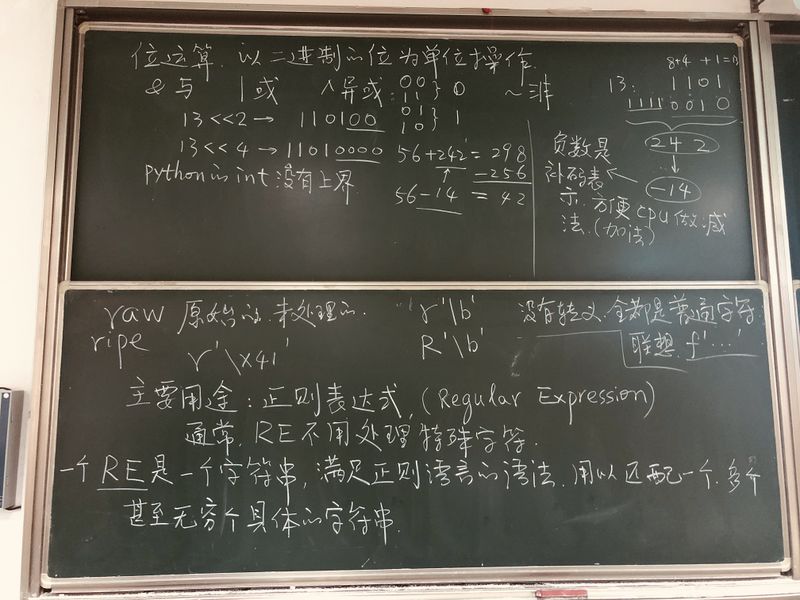 位运算. 以二进制的位为单位操作.
& 与 | 或 ^ 异或: 00 11 } 0 ~ 非
01 10 } 1
13<<2 → 110100
13<<4 → 11010000
python的int没有上界
56+242 = 298
-256
56-14 = 42
8+4 +1=13
13: 1101
1111 0010
242
↓
-14
负数是
补码表
示. 方便cpu做减
法.(加法)
raw 原始的. 未处理的.
ripe
r'\x41'
r'\b'
R'\b'
没有转义. 全都是普通字符
联想 f'...'
主要用途: 正则表达式. (Regular Expression)
通常. RE不用处理特殊字符.
一个RE是一个字符串, 满足正则语言的语法. 用以匹配一个. 多个
甚至无穷个具体的字符串.